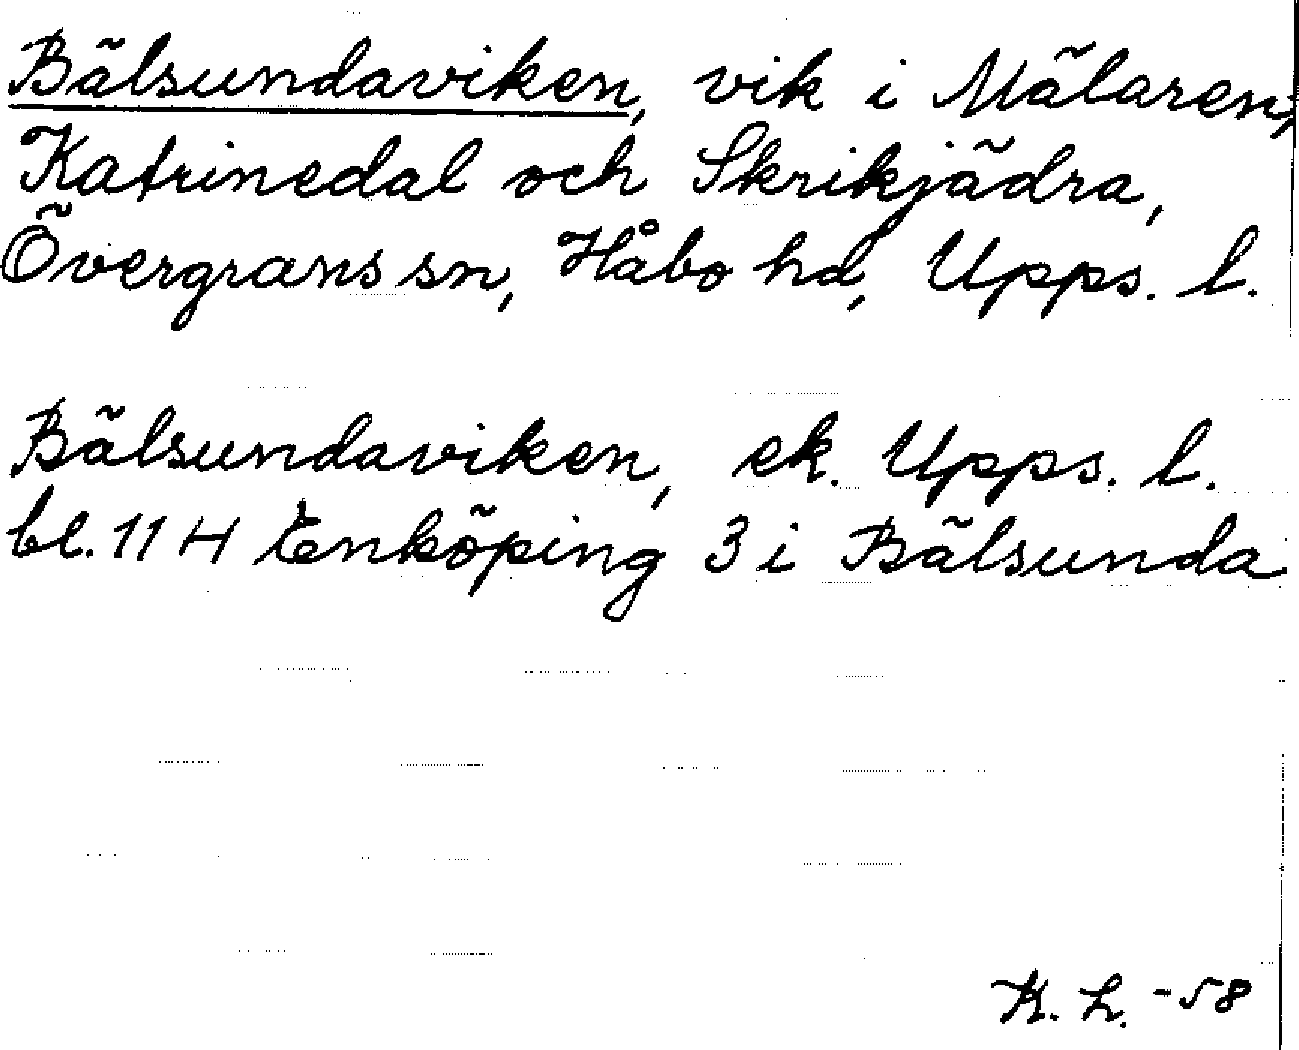 Bälsundaviken, vik i Mälaren,
Katrinedal och Skrikjädra,
Övergrans sn, Håbo hd, Upps. l.
Bälsundaviken, ek. Upps. l.
bl. 114 Enköping 3 i Bälsunda
K. L. -58